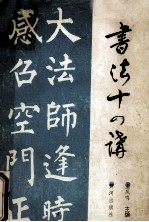 書法十講
大法師逢時
感召空門正